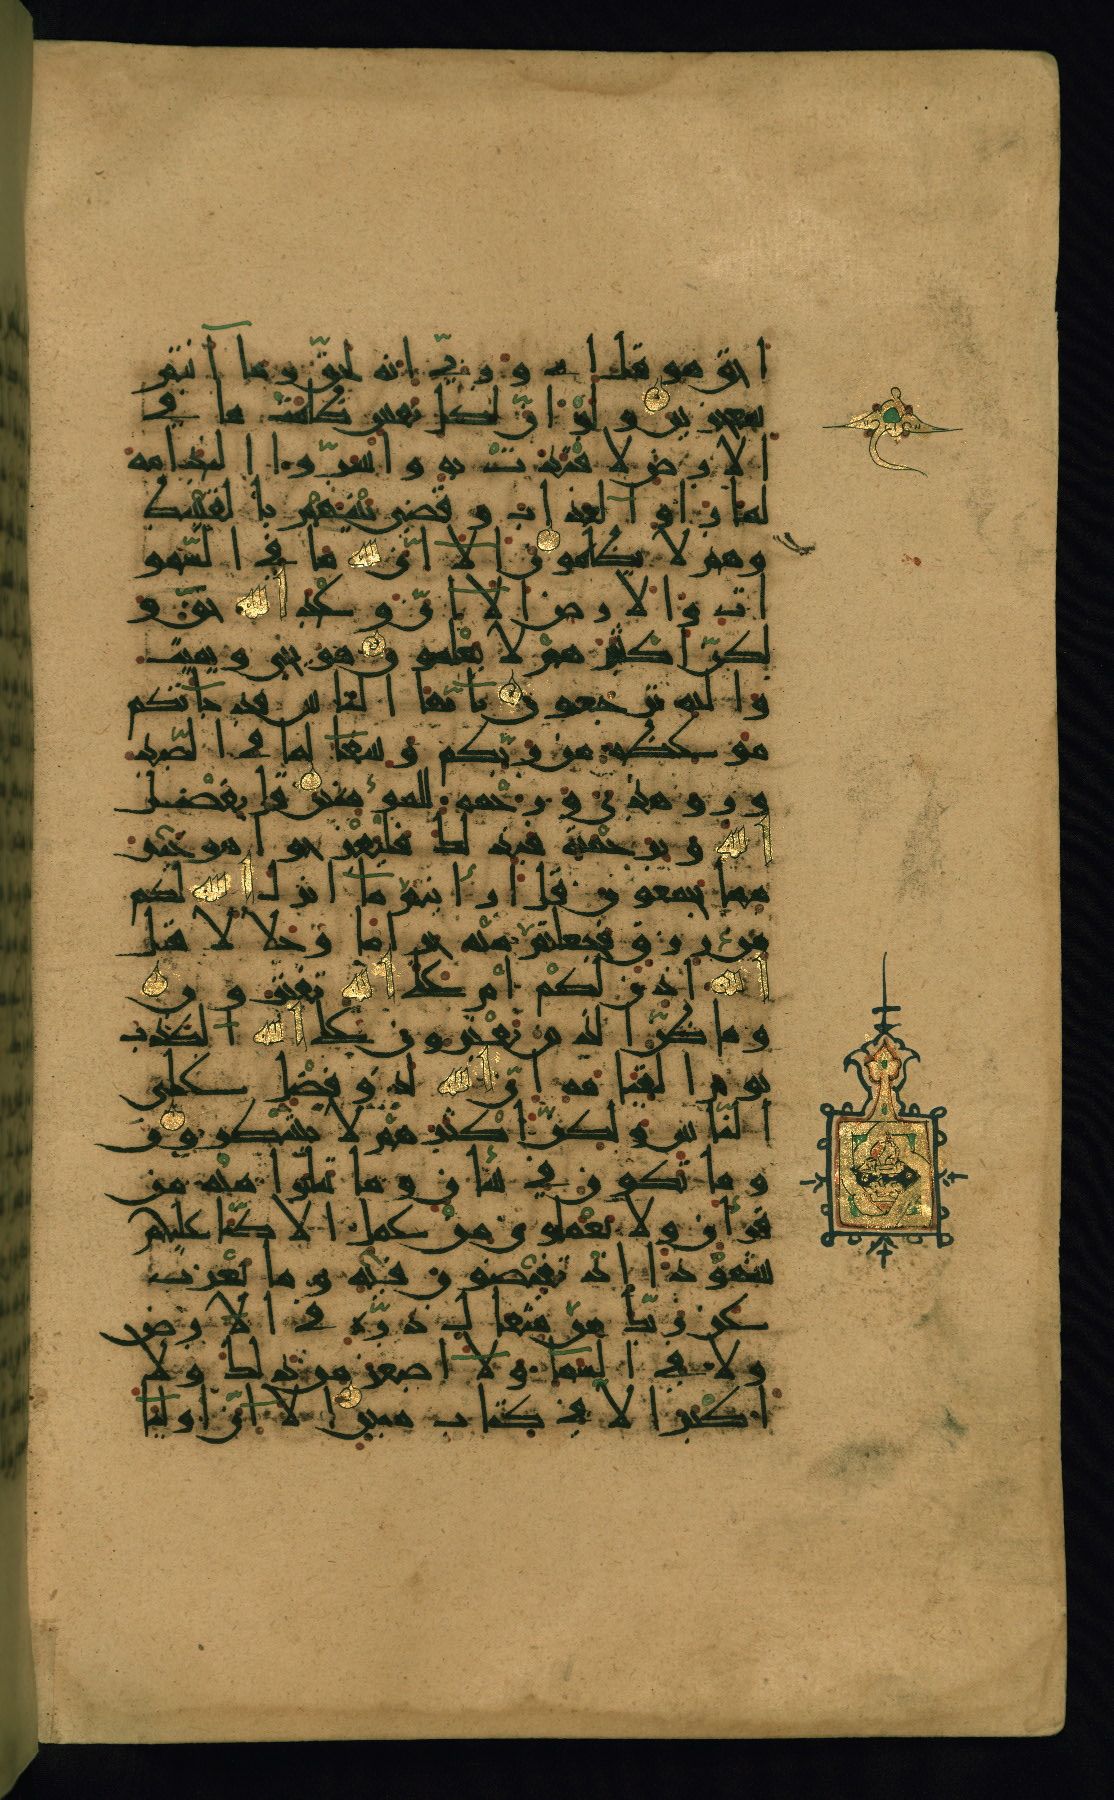 احق هو قل اي وربي انه لحق وما انتم
بمعجزين ولو ان لكل نفس ظلمت ما في
الارض لافتدت به واسروا الندامة
لما راوا العذاب وقضي بينهم بالقسط
وهم لا يظلمون الا ان لله ما في السمو
ات والارض الا ان وعد الله حق و
لكن اكثرهم لا يعلمون هو يحيي ويميت
واليه ترجعون يايها الناس قد جاتكم
موعظة من ربكم وشفا لما في الصد
ور وهدى ورحمة للمؤمنين قل بفضل
الله وبرحمته فبذلك فليفرحوا هو خير
مما يجمعون قل ارايتم ما انزل الله لكم
من رزق فجعلتم منه حراما وحلالا قل
الله اذن لكم ام على الله تفترون
وما ظن الذين يفترون على الله الكذب
يوم القيامة ان الله لذو فضل على
الناس ولكن اكثرهم لا يشكرون
وما تكون في شان وما تتلوا منه من
قران ولا تعملون من عمل الا كنا عليكم
شهودا اذ تفيضون فيه وما يعزب
عن ربك من مثقال ذرة في الارض
ولا في السما ولا اصغر من ذلك ولا
اكبر الا في كتاب مبين الا ان اوليا